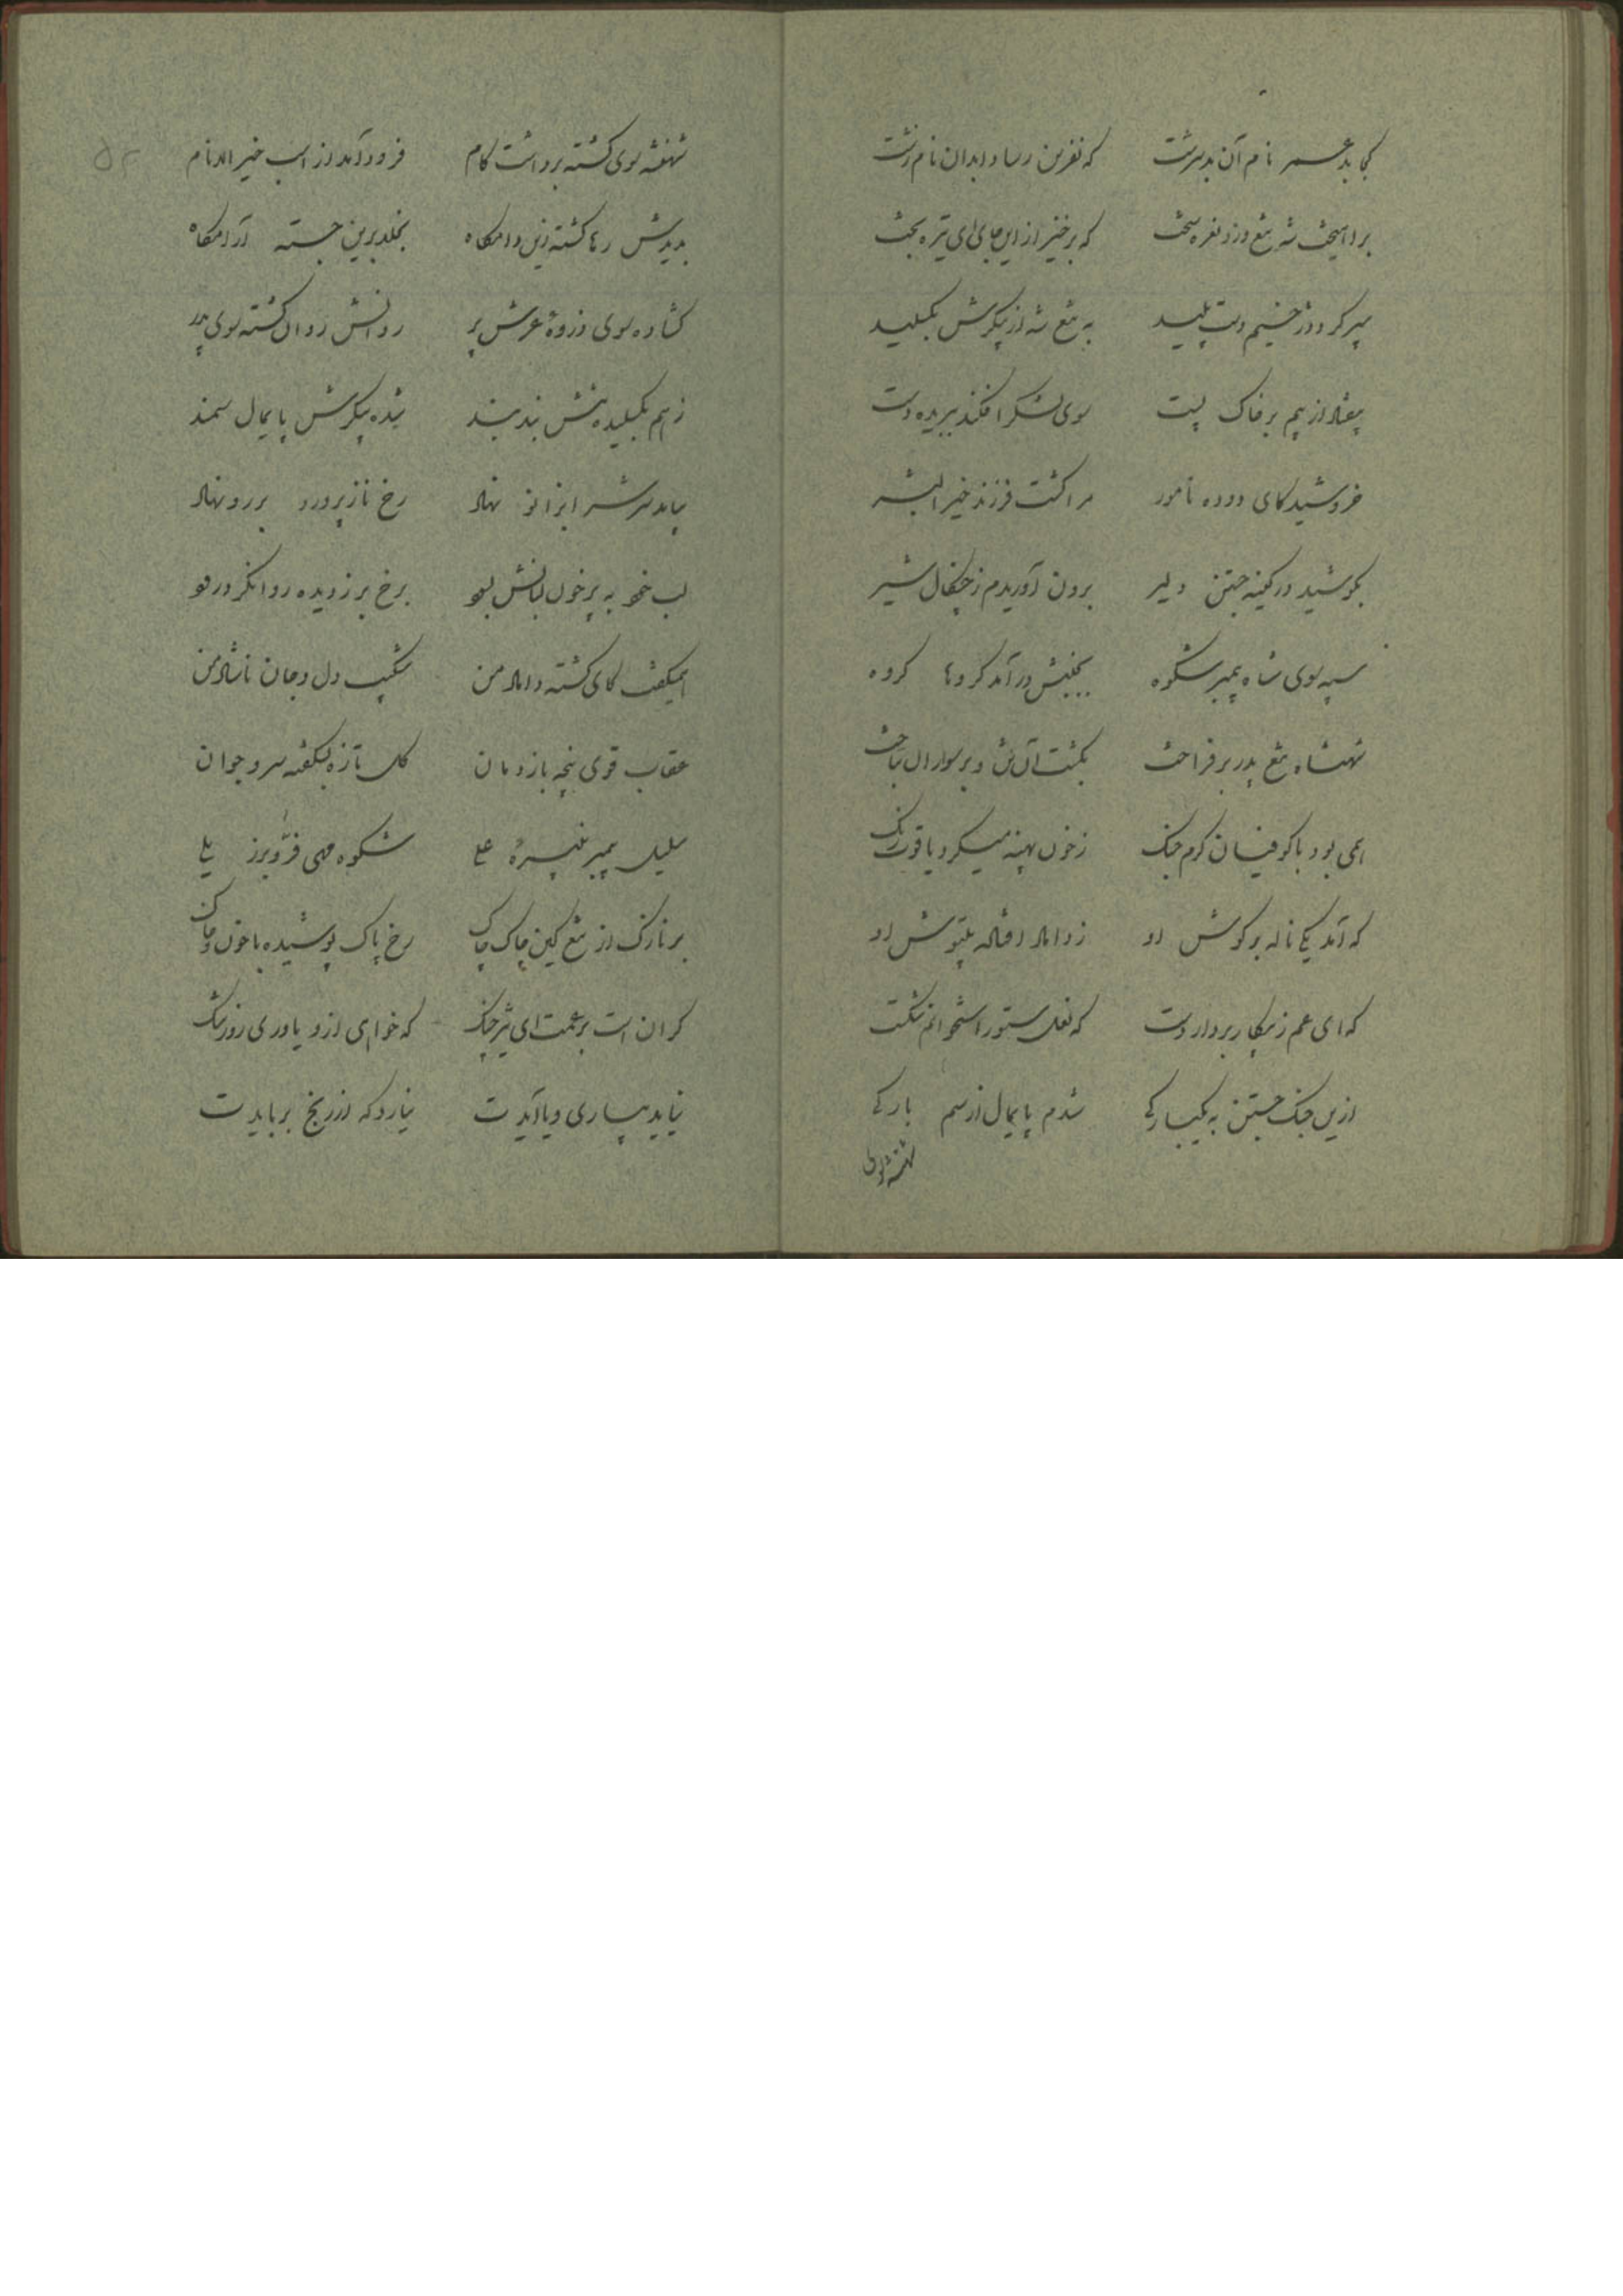 کجا بد عمر نام آن بدسرشت که نفرین رسا د ابدان نام زشت
برآهیخت شه تیغ وزد نعره سخت که برخیز از این جای ای تیره بخت
سپر کرد دژخیم دست پلید به تیغ شه از پیکرش بگسلید
بیفتاد از بیم بر خاک پست سوی لشکر افکند ببریده دست
خروشید کای دوده نامور مرا کشت فرزند خیر البشر
بکوشید در کینه جستن دلیر برون آوریدم ز چنگال شیر
سپه سوی شاه پیمبر شکوه بجنبش در آمد گروها گروه
شهنشاه تیغ پدر برفراخت بکشت آن تن و بر سواران بتاخت
همی بود با کوفیان گرم جنگ ز خون پهنه میکرد یاقوت رنگ
که آمد یکی ناله بر گوش او ز داماد افتاده
که ای عم ز پیکار بردار دست که نعل ستور استخوانم شکست
ازین جنگ جستن به یکبارگی شدم پایمال از سم بارگی
شهنشه سوی
۵۲
شهنشه سوی کشته برداشت گام فرود آمد از اسب خیر الانام
بدیدش رها گشته زین دامگاه بخلد برین جسته آرامگاه
گشاده سوی ذروهٔ عرش پر روانش روان گشته سوی پدر
ز هم بگسلیده تنش بند بند شده پیکرش پایمال سمند
بیامد سرش را بزانو نهاد رخ نازپرورد بر رو نهاد
لب خود به پر خون لبانش بسود برخ بر ز دیده روان کرد رود
همیگفت کای کشته داماد من شکیب دل و جان ناشاد من
عقاب قوی پنجه بازو مان گل تازه بشکفته سرو جوان
سلیل پیمبر نبیرهٔ علی شکوه مهی فرّ و برز یلی
بر نازک از تیغ کین چاک چاک رخ پاک پوشیده با خون و خاک
گران است بر عمت ای تیز جنگ که خواهی ازو یاوری روز تنگ
نیاید بیاری و یا آیدت نیارد که از رنج برہایدت